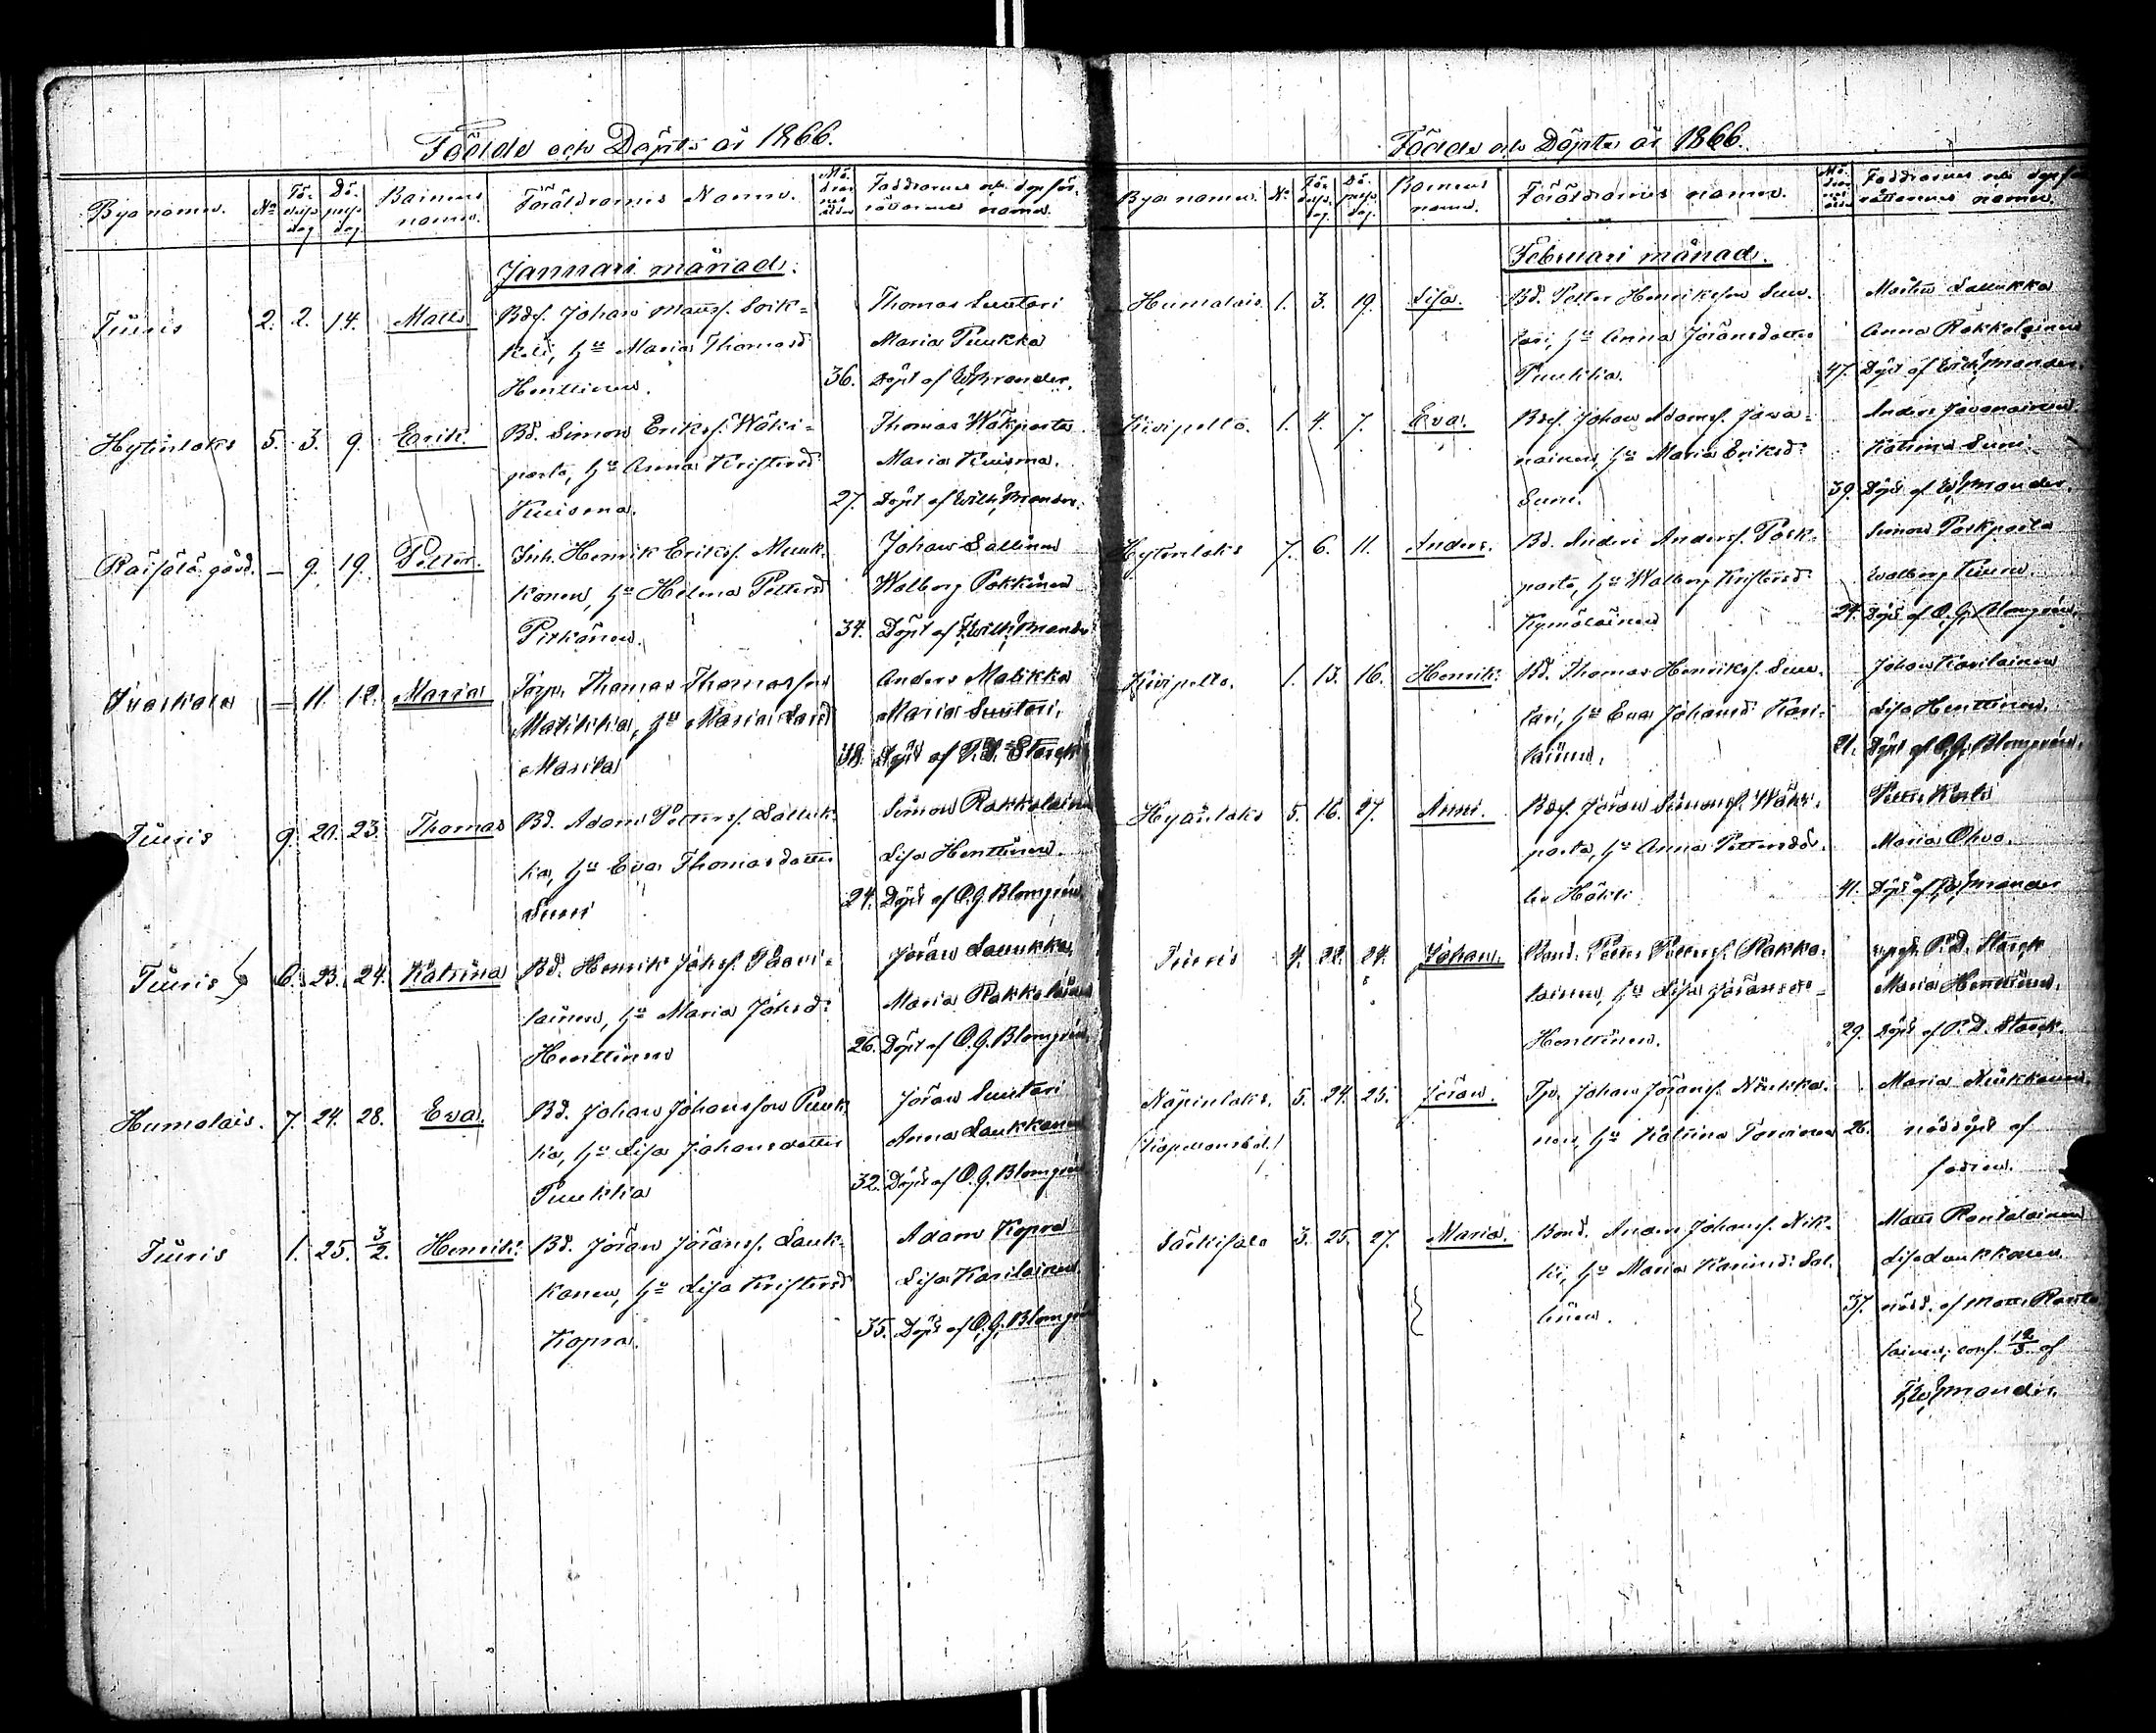 Födde och Döpte år 1866.
Byanamn. No Födelsedag Döpelsedag Barnens namn. Föräldrarnes Namn. Modrens ålder Faddrarnes och dopförrättarnes namn.
Januari månad.
Tiuris 2. 2. 14. Matts Bdf. Johan Mattsf. Soik=
keli, hu Maria Thomasd
Henttinen. 36.
Thomas Suutari
Maria Puukka
Döpt af Wmander.
Hytinlaks 5. 3. 9. Erik. Bd. Simon Eriksf. Wäki=
parta, hu Anna Kristersd
Kuisma. 27.
Thomas Wäkiparta
Maria Kuisma.
Döpt af Wilh.
Räisälä gård. — 9. 19. Petter. Inh. Henrik Eriksf. Muuk=
konen, hu Helena Pettersd
Pitkänen. 34.
Johan Sallinen
Walborg Pokkinen
Döpt af F. Wilh.
— 11. 12. Maria Torp. Thomas Thomasson
Matikka, hu Maria Larsd
38.
Anders Matikka
Maria Suutari.
Döpt af P. D. Starck
Tiuris 9. 20. 23. Thomas Bd. Adam Pettersf. Lalluk=
ka, hu Eva Thomasdotter
Suni 24.
Simon Rakkolainen
Lisa Henttinen.
Döpt af O. G. Blomgren.
Tiuris 6. 23. 24. Katrina Bd. Henrik Johsf. Paavi=
lainen, hu Maria Johsd:
Henttinen 26.
Jöran Laukka
Maria Rakkolainen
Döpt af O. G. Blomgren.
Humalais. 7. 24. 28. Eva. Bd. Johan Johansson Puuk=
ka, hu Lisa Johansdotter
Puukka 32.
Jöran Suutari
Anna Laukkanen
Döpt af O. G. Blomgren
Tiuris 1. 25. 3/2. Henrik. Bd. Jöran Jöransf. Lauk=
kanen, hu Lisa Kristersd
Kopra. 35.
Adam Kopra
Lisa Karilainen
Döpt af O. G. Blomgren
Födde och Döpte år 1866.
Byanamn. No Födelsedag. Döpelsedag. Barnens namn. Föräldrarnes namn. Modrens ålder Faddrarnes och dopförrättarnes namn.
Februari månad.
Humalais. 1. 3. 19. Lisa. Bd. Petter Henriksson Suu=
tari, hu Anna Jöransdotter
Puukka. 47.
Mårten Lallukka
Anna Rakkolainen
Döpt af Wilh.
Kivipelto. 1. 4. 7. Eva. Bdf. Johan Adamsf. Java=
nainen, hu Maria Eriksd:
Suni. 39.
Anders Javanainen.
Katrina Suni.
Döpt af
Hytinlaks 7. 6. 11. Anders. Bd. Anders Andersf. Pask=
parta, hu Walborg Kristersd
Kymäläinen 24.
Simon Paskparta
Walborg
Döpt af O. G. Blomgren.
Kivipelto. 1. 13. 16. Henrik. Bd. Thomas Henriksf. Suu=
tari, hu Eva Johansd: Kari=
lainen. 21.
Johan Karilainen
Lisa Henttinen.
Döpt af O. G. Blomgren.
5. 16. 27. Anni. Bdf. Jöran Simonsf. Wäki=
parta, hu Anna Pettersdot=
ter Häkli 41.
Petter
Maria Ohvo.
Döpt af
Tiuris 4. 22. 24. Johan. Bond. Petter Pettersf. Rakko=
lainen, hu Lisa Jöransd=
Henttinen. 29.
P. D. Starck
Maria Henttinen.
Döpt af P. D. Starck.
Näpinlaks. 5. 24. 25. Jöran. Tp. Johan Jöransf. Niukka=
nen, hu Katrina 26.
Maria Niukkanen.
nöddöpt af
fadren.
Särkisalo 3. 25. 27. Maria. Bond. Anders Johansf. Nik=
ki, hu Maria Sal=
linen. 37.
Matts Rantalainen
Lisa Laukkanen.
nödd. af Matts Ranta=
lainen, conf. 12/3 af